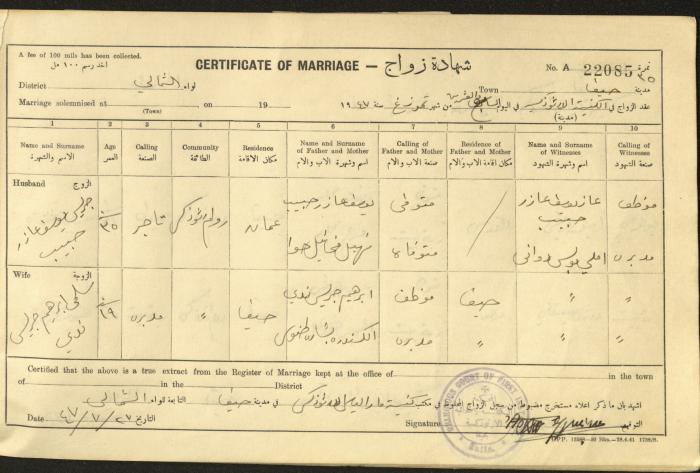 A fee of 100 mils has been collected.
اخذ رسم ١٠٠ مل
CERTIFICATE OF MARRIAGE — شهادة زواج
No. A 22085 نمرة
٣٥
District الشمالي لواء
Town حيفا مدينة
Marriage solemnised at on 19
(Town)
عقد الزواج في الكنيسة في اليوم من شهر تموز سنة ١٩٤٧
(مدينة)
1 2 3 4 5 6 7 8 9 10
Name and Surname
الاسم والشهرة
Age
العمر
Calling
الصنعة
Community
الطائفة
Residence
مكان الاقامة
Name and Surname of Father and Mother
اسم وشهرة الاب والام
Calling of Father and Mother
صنعة الاب والام
Residence of Father and Mother
مكان اقامة الاب والام
Name and Surname of Witnesses
اسم وشهرة الشهود
Calling of Witnesses
صنعة الشهود
Husband الزوج
جريس يوسف عازر
حبيب
٣٥
تاجر
روم ارثوذكس
عمان
يوسف عازر حبيب
متوفي
متوفاه
عازر يوسف عازر
حبيب
موظف
مديرة
Wife الزوجة
سلمى ابرهيم جريس
ندي
١٩
مديرة
〃
حيفا
ابرهيم جريس ندي
موظف
مديرة
حيفا
〃
〃
〃
〃
Certified that the above is a true extract from the Register of Marriage kept at the office of in the town
of in the District
اشهد بان ما ذكر اعلاه مستخرج مضبوط من سجل الزواج المحفوظ في مكتب كنيسة في مدينة حيفا التابعة للواء الشمالي
Date ٢٧/٧/٤٧ التاريخ
Signature التوقيع
COURT OF FIRST
Haifa